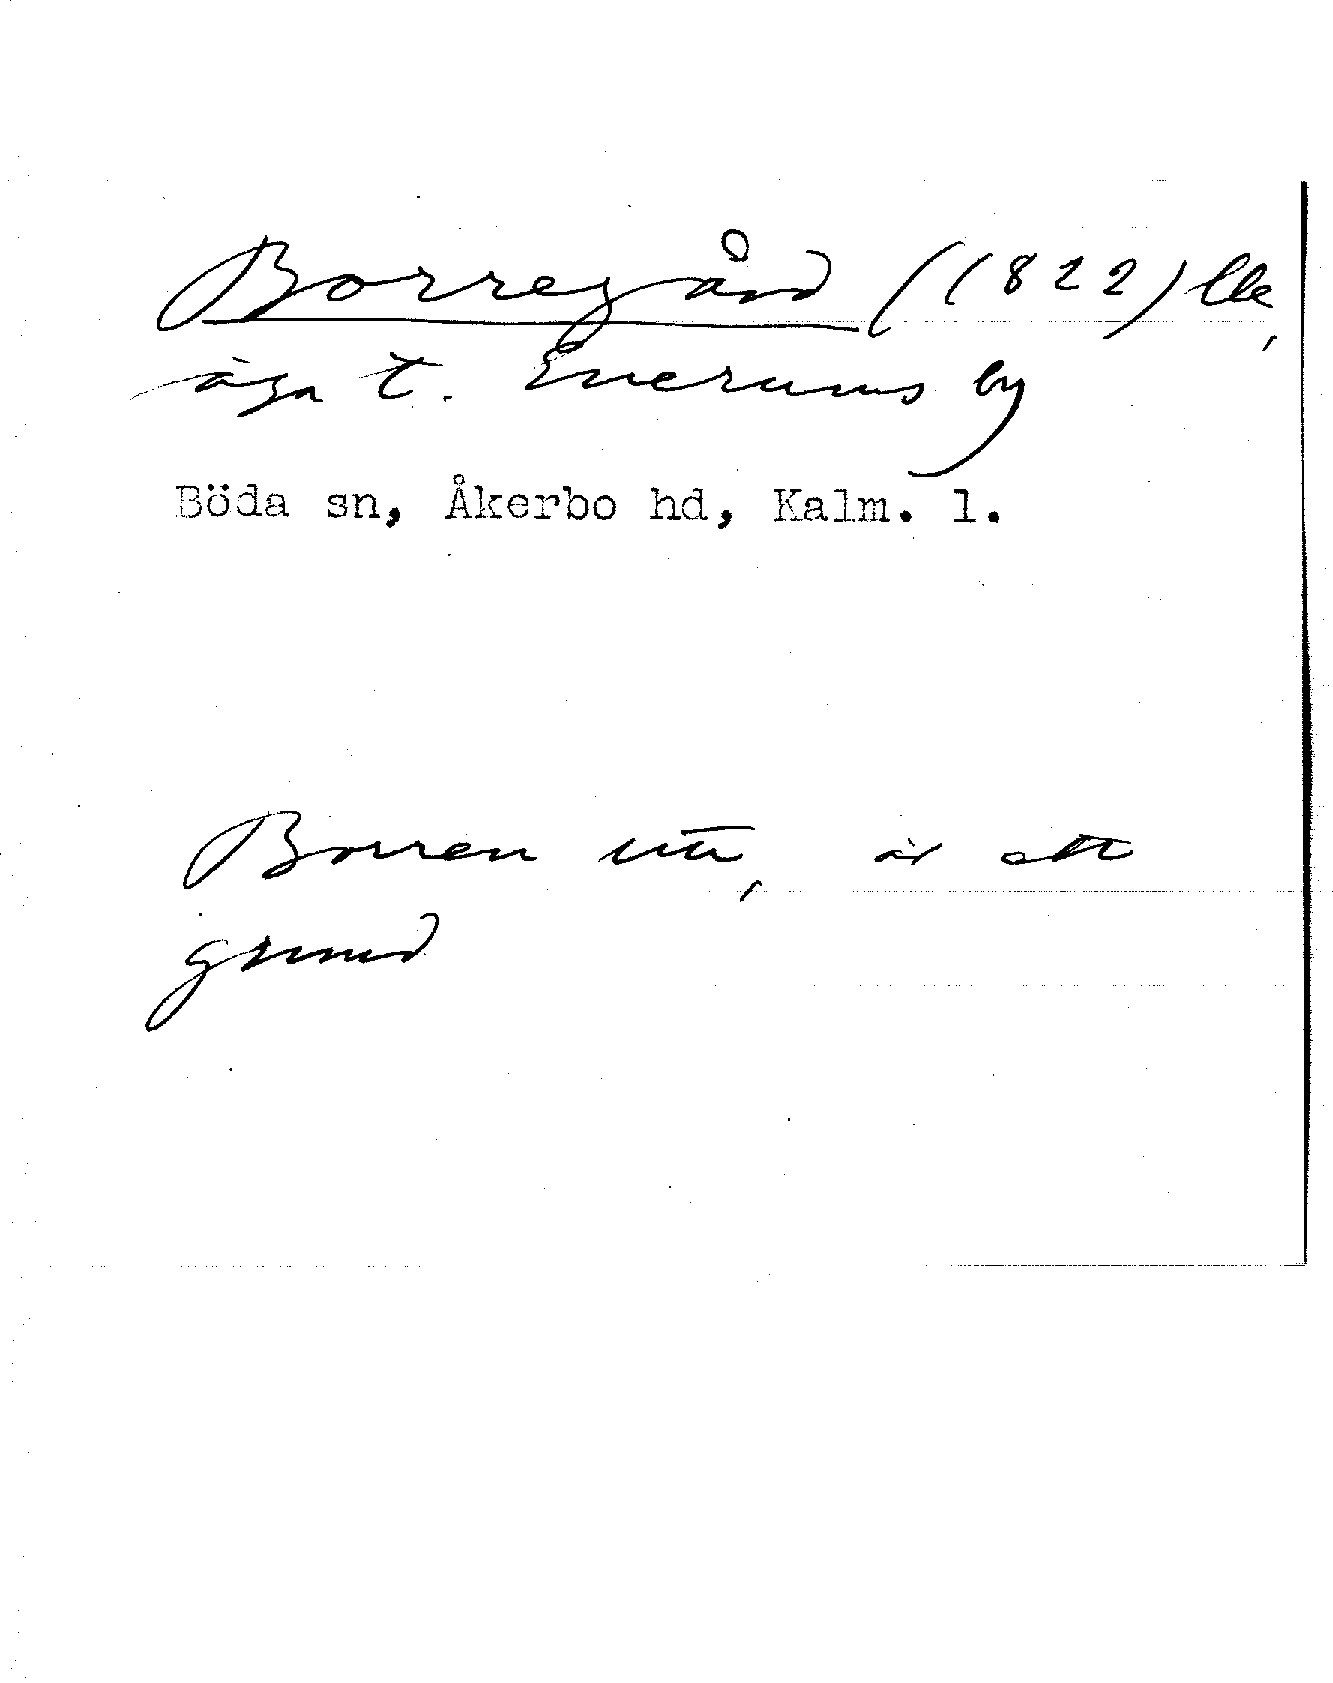 Borregård (1822) lle,
äga t. Enerums by
Böda sn, Åkerbo hd, Kalm. l.
Borren utr, är ett
grund